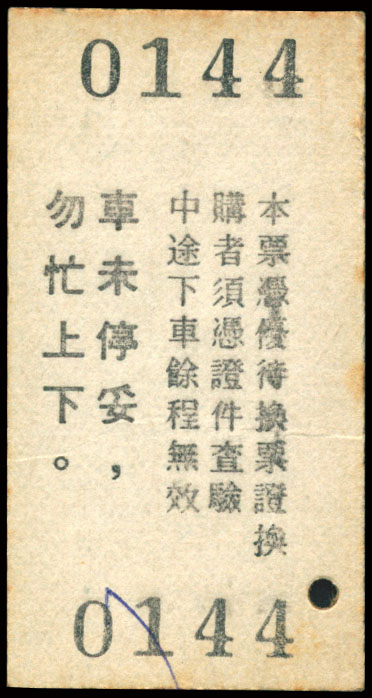 0144
本票憑優待換票證換
購者須憑證件查驗
中途下車餘程無效
車未停妥，
勿忙上下。
0144